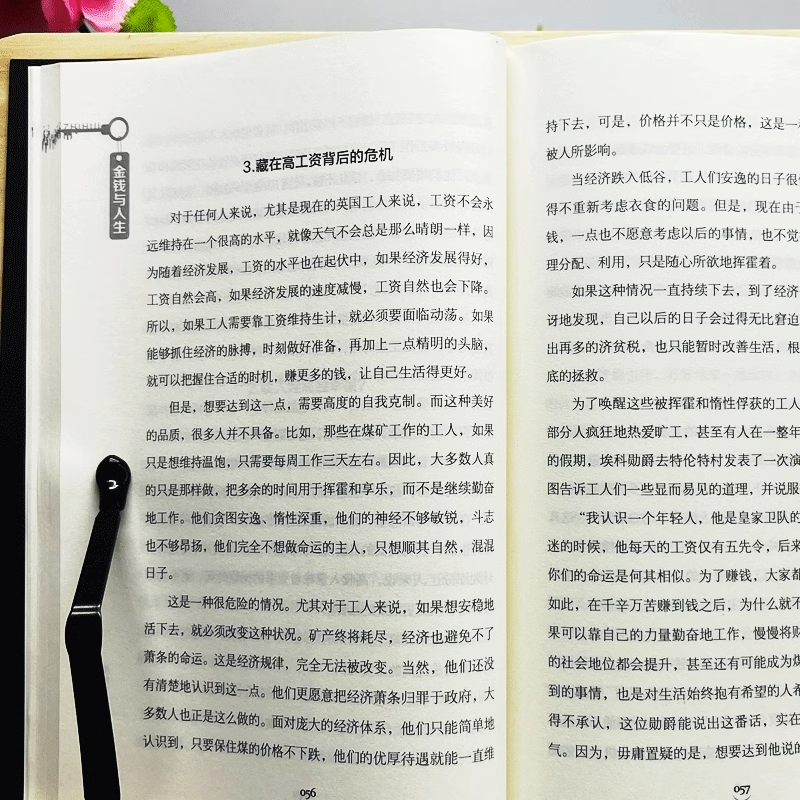 金钱与人生
3.藏在高工资背后的危机
对于任何人来说，尤其是现在的英国工人来说，工资不会永
远维持在一个很高的水平，就像天气不会总是那么晴朗一样，因
为随着经济发展，工资的水平也在起伏中，如果经济发展得好，
工资自然会高，如果经济发展的速度减慢，工资自然也会下降。
所以，如果工人需要靠工资维持生计，就必须要面临动荡。如果
能够抓住经济的脉搏，时刻做好准备，再加上一点精明的头脑，
就可以把握住合适的时机，赚更多的钱，让自己生活得更好。
但是，想要达到这一点，需要高度的自我克制。而这种美好
的品质，很多人并不具备。比如，那些在煤矿工作的工人，如果
只是想维持温饱，只需要每周工作三天左右。因此，大多数人真
的只是那样做，把多余的时间用于挥霍和享乐，而不是继续勤奋
地工作。他们贪图安逸、惰性深重，他们的神经不够敏锐，斗志
也不够昂扬，他们完全不想做命运的主人，只想顺其自然，混混
日子。
这是一种很危险的情况。尤其对于工人来说，如果想安稳地
活下去，就必须改变这种状况。矿产终将耗尽，经济也避免不了
萧条的命运。这是经济规律，完全无法被改变。当然，他们还没
有清楚地认识到这一点。他们更愿意把经济萧条归罪于政府，大
多数人也正是这么做的。面对庞大的经济体系，他们只能简单地
认识到，只要保住煤的价格不下跌，他们的优厚待遇就能一直维
056
持下去，可是，价格并不只是价格，这是一
被人所影响。
当经济跌入低谷，工人们安逸的日子很
得不重新考虑衣食的问题。但是，现在由于
钱，一点也不愿意考虑以后的事情，也不觉
理分配、利用，只是随心所欲地挥霍着。
如果这种情况一直持续下去，到了经济
讶地发现，自己以后的日子会过得无比窘迫
出再多的济贫税，也只能暂时改善生活，根
底的拯救。
为了唤醒这些被挥霍和惰性俘获的工人
部分人疯狂地热爱旷工，甚至有人在一整年
的假期，埃科勋爵去特伦特村发表了一次演
图告诉工人们一些显而易见的道理，并说服
“我认识一个年轻人，他是皇家卫队的
迷的时候，他每天的工资仅有五先令，后来
你们的命运是何其相似。为了赚钱，大家都
如此，在千辛万苦赚到钱之后，为什么就不
果可以靠自己的力量勤奋地工作，慢慢将财
的社会地位都会提升，甚至还有可能成为煤
到的事情，也是对生活始终抱有希望的人希
得不承认，这位勋爵能说出这番话，实在
气。因为，毋庸置疑的是，想要达到他说的
057